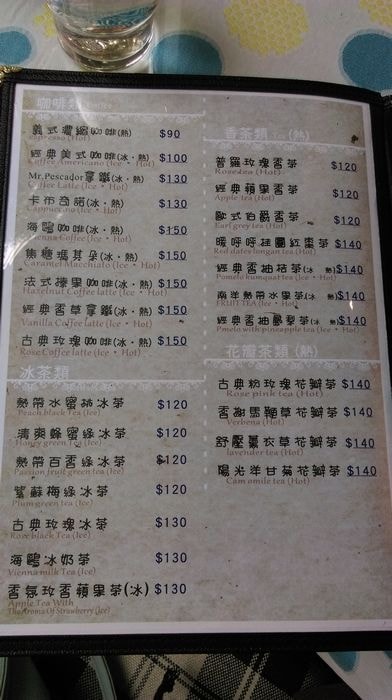 咖啡類 Coffee
義式濃縮咖啡(熱) $90
Espresso (Hot)
經典美式咖啡(冰·熱) $100
Coffee Americano (Ice · Hot)
Mr.Pescador拿鐵(冰·熱) $130
Coffee Latte (Ice · Hot)
卡布奇諾(冰·熱) $130
Cappuccino (Ice · Hot)
海鷗咖啡(冰·熱) $150
Vienna Coffee (Ice · Hot)
焦糖瑪其朵(冰·熱) $150
Caramel Macchiato (Ice · Hot)
法式榛果咖啡(冰·熱) $150
Hazelnut Coffee latte (Ice · Hot)
經典香草拿鐵(冰·熱) $150
Vanilla Coffee latte (Ice · Hot)
古典玫瑰咖啡(冰·熱) $150
Rose Coffee latte (Ice · Hot)
冰茶類
熱帶水蜜桃冰茶 $120
Peach black Tea (Ice)
清爽蜂蜜綠冰茶 $120
Honey green Tea (Ice)
熱帶百香綠冰茶 $120
Passion fruit green tea (Ice)
紫蘇梅綠冰茶 $120
Plum green tea (Ice)
古典玫瑰冰茶 $130
Rose black Tea (Ice)
海鷗冰奶茶 $130
Vienna milk Tea (Ice)
香氛玫香蘋果茶(冰) $130
Apple Tea With
The Aroma Of Strawberry (Ice)
香茶類 Tea (熱)
普羅玫瑰香茶 $120
Rose tea (Hot)
經典蘋果香茶 $120
Apple tea (Hot)
歐式伯爵香茶 $120
Earl grey tea (Hot)
暖呼呼桂圓紅棗茶 $140
Red dates longan tea (Hot)
經典香柚桔茶(冰·熱) $140
Pomelo kumquat tea (Ice · Hot)
南洋熱帶水果茶(冰·熱) $140
FRUIT TEA (Ice · Hot)
經典香柚鳳梨茶(冰·熱) $140
Pomelo with pineapple tea (Ice · Hot)
花瓣茶類 (熱)
古典粉玫瑰花瓣茶 $140
Rose pink tea (Hot)
香榭馬鞭草花瓣茶 $140
Verbena (Hot)
舒壓薰衣草花瓣茶 $140
lavender tea (Hot)
陽光洋甘菊花瓣茶 $140
Camomile tea (Hot)